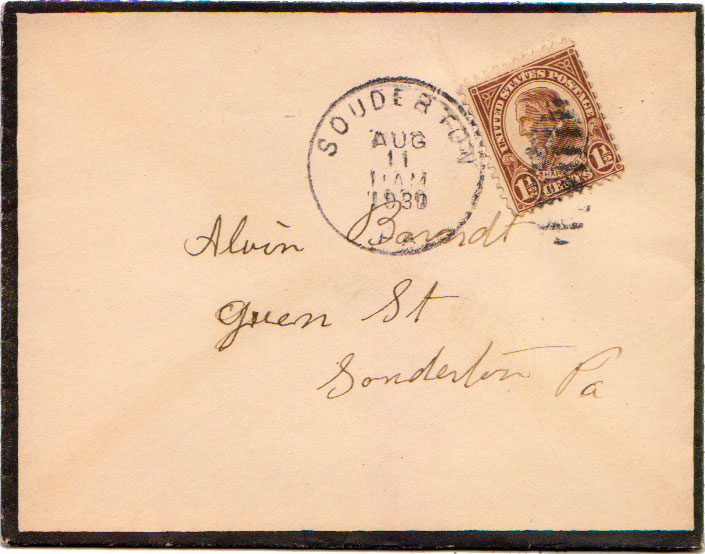 SOUDERTON
AUG
11
11AM
1930
UNITED STATES POSTAGE
1½ CENTS 1½
Alvin Barndt
Green St
Souderton Pa